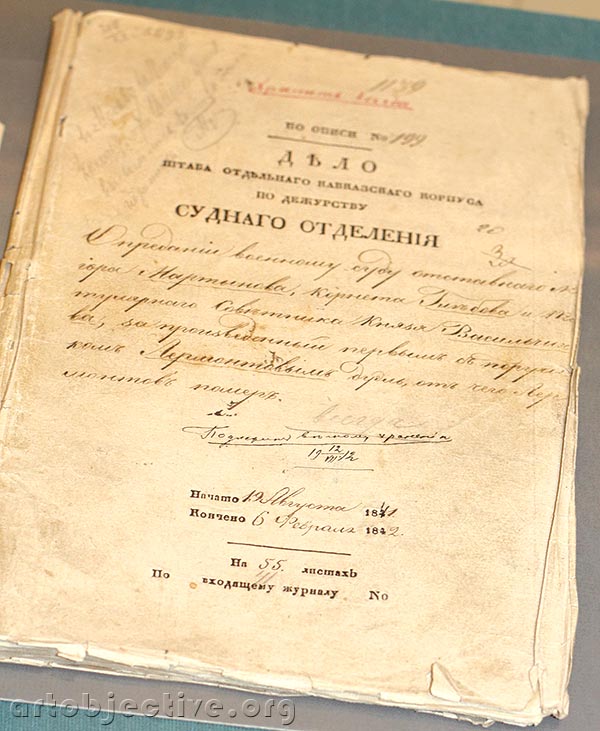 1139
Хранить вѣчно
ПО ОПИСИ № 199
ДѢЛО
ШТАБА ОТДѢЛЬНАГО КАВКАЗСКАГО КОРПУСА
ПО ДЕЖУРСТВУ
СУДНАГО ОТДЕЛЕНІЯ
О преданіи военному суду отставнаго Ма-
іора Мартынова, Корнета Глѣбова и Ти-
тулярнаго Совѣтника Князя Васильчико-
ва, за произведенный первымъ съ поручи-
комъ Лермонтовымъ дуэль, отъ чего Лер-
монтовъ померъ.
Подлежит вѣчному храненію
19 12/VIII 12
Начато 12 Августа 1841
Кончено 6 Февраля 1842.
На 55. листахъ
По входящему журналу №
artobjective.org